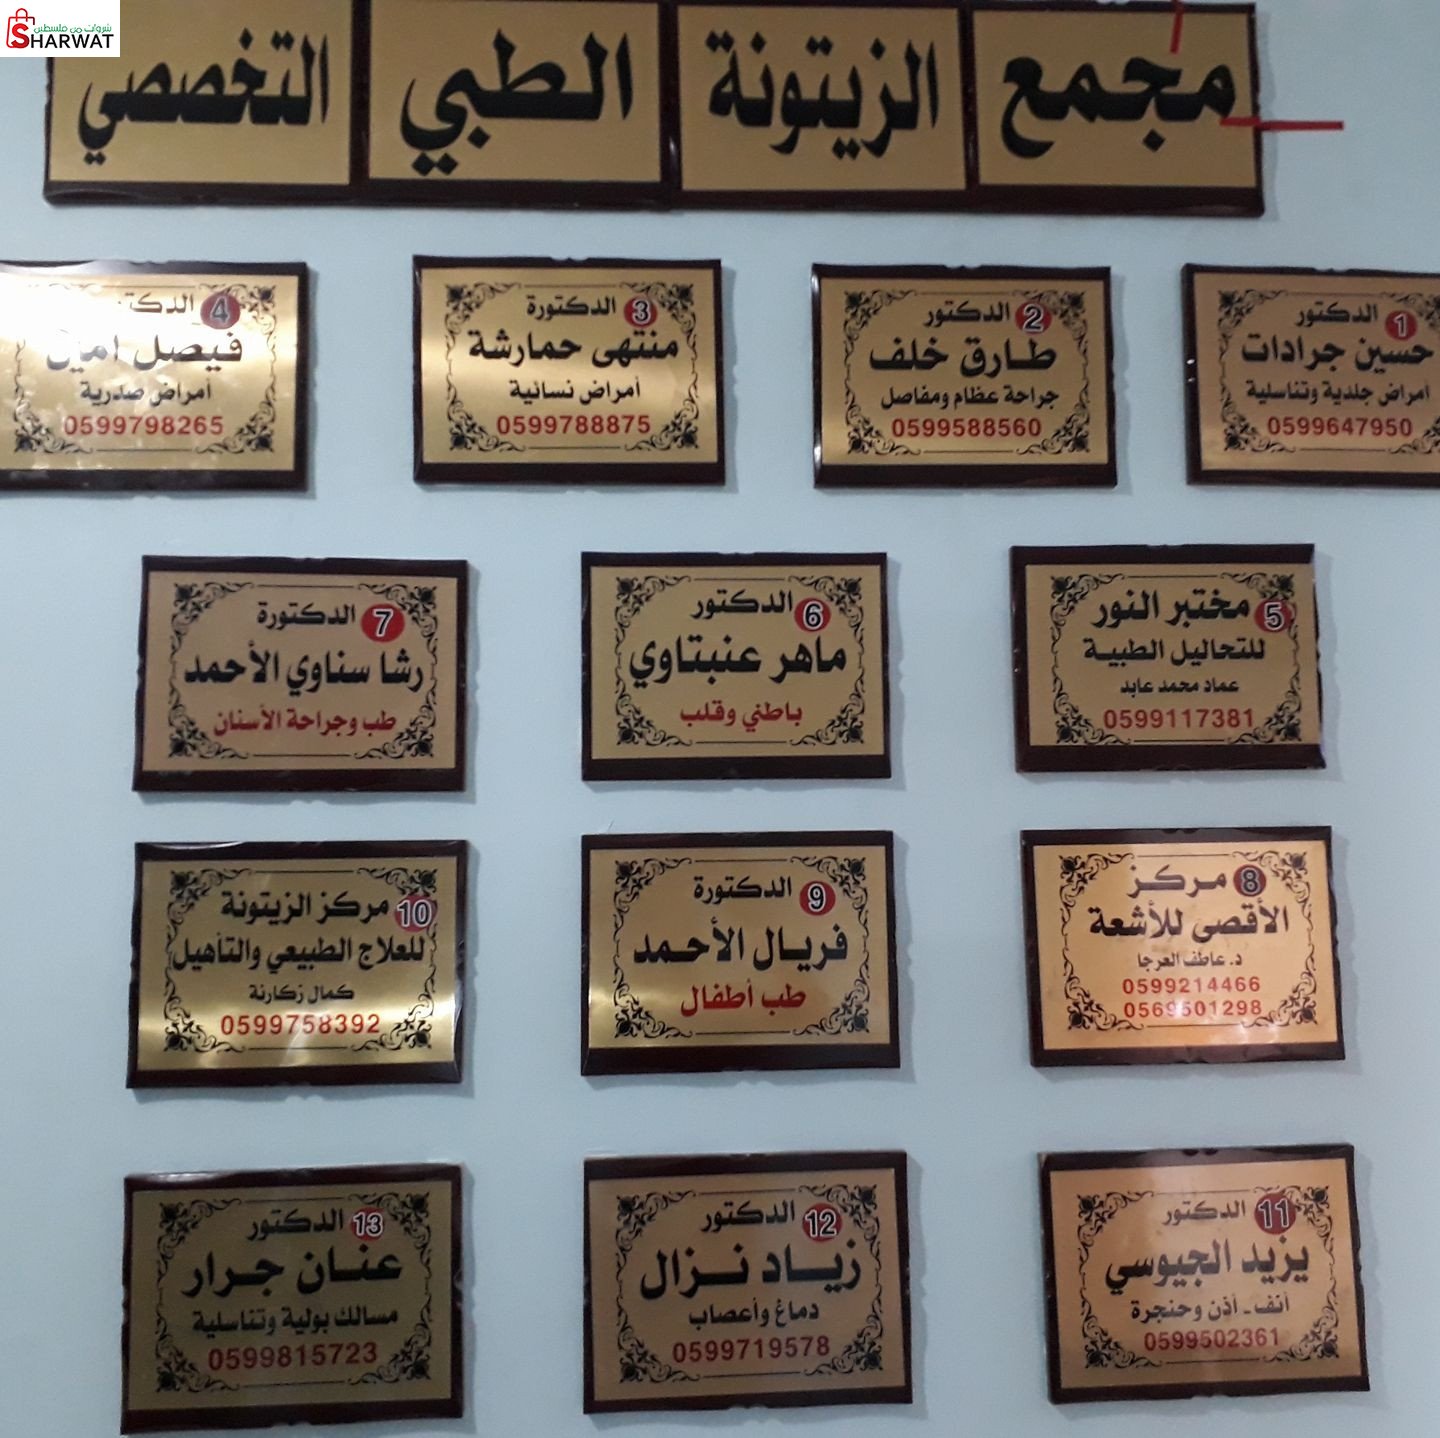 شروات من فلسطين
SHARWAT
مجمع الزيتونة الطبي التخصصي
1 الدكتور
حسين جرادات
امراض جلدية وتناسلية
0599647950
2 الدكتور
طارق خلف
جراحة عظام ومفاصل
0599588560
3 الدكتورة
منتهى حمارشة
أمراض نسائية
0599788875
4 الدكتور
فيصل امين
أمراض صدرية
0599798265
5 مختبر النور
للتحاليل الطبية
عماد محمد عابد
0599117381
6 الدكتور
ماهر عنبتاوي
باطني وقلب
7 الدكتورة
رشا سناوي الأحمد
طب وجراحة الأسنان
8 مركز
الأقصى للأشعة
د. عاطف العرجا
0599214466
0569501298
9 الدكتورة
فريال الأحمد
طب أطفال
10 مركز الزيتونة
للعلاج الطبيعي والتأهيل
كمال زكارنة
0599758392
11 الدكتور
يزيد الجيوسي
أنف - أذن وحنجرة
0599502361
12 الدكتور
زياد نزال
دماغ وأعصاب
0599719578
13 الدكتور
عنان جرار
مسالك بولية وتناسلية
0599815723